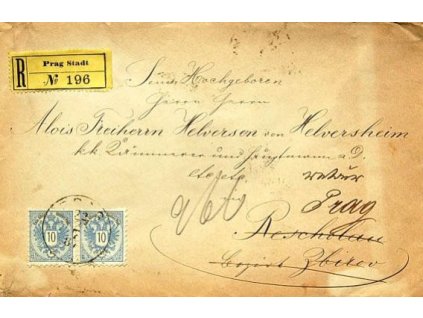 R Prag Stadt
№ 196
Seiner Hochgeboren
Herrn Herrn
Alois Freiherrn Helversen von Helversheim
k.k. Kämmerer und Hauptmann a.D.
etc etc
retour
Prag
Bezirk Zbirov
10 10